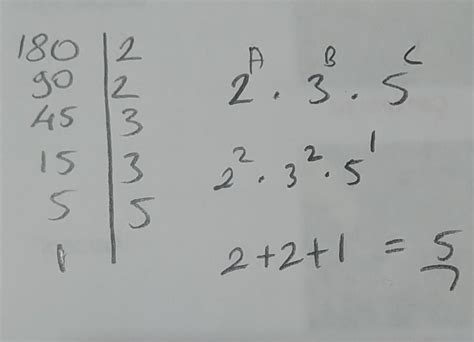 180 | 2
90 | 2
45 | 3
15 | 3
5 | 5
1 |
2^A · 3^B · 5^C
2^2 · 3^2 · 5^1
2+2+1 = 5